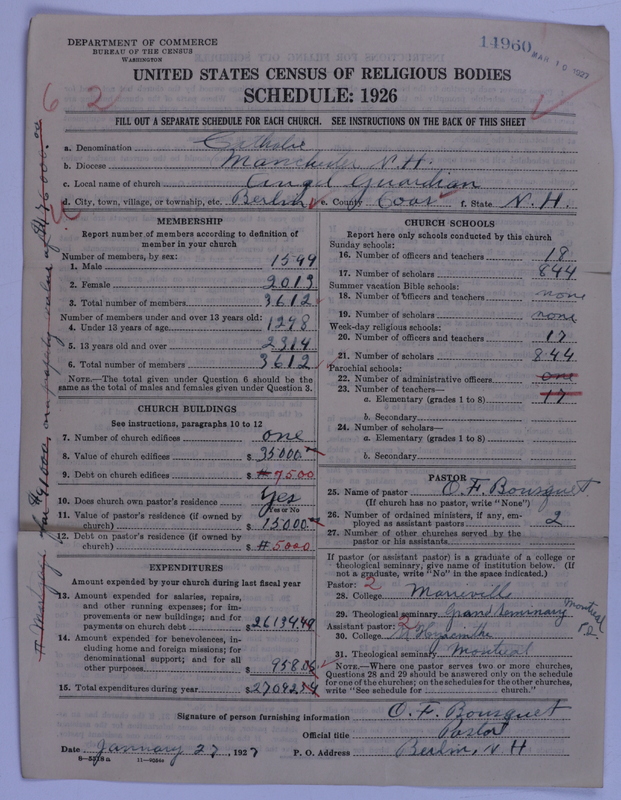 DEPARTMENT OF COMMERCE
BUREAU OF THE CENSUS
WASHINGTON
14960
MAR 10 1927
UNITED STATES CENSUS OF RELIGIOUS BODIES
SCHEDULE: 1926
6 2
FILL OUT A SEPARATE SCHEDULE FOR EACH CHURCH. SEE INSTRUCTIONS ON THE BACK OF THIS SHEET
a. Denomination Catholic
b. Diocese Manchester N.H.
c. Local name of church Angel Guardian
d. City, town, village, or township, etc. Berlin e. County Coos f. State N.H.
MEMBERSHIP
Report number of members according to definition of
member in your church
Number of members, by sex:
1. Male 1599
2. Female 2013
3. Total number of members 3612
Number of members under and over 13 years old:
4. Under 13 years of age 1298
5. 13 years old and over 2314
6. Total number of members 3612
NOTE.—The total given under Question 6 should be the
same as the total of males and females given under Question 3.
CHURCH BUILDINGS
See instructions, paragraphs 10 to 12
7. Number of church edifices one
8. Value of church edifices $ 35000
9. Debt on church edifices $ # 7500
10. Does church own pastor's residence Yes
Yes or No
11. Value of pastor's residence (if owned by
church) $ 15000
12. Debt on pastor's residence (if owned by
church) $ # 5000
EXPENDITURES
Amount expended by your church during last fiscal year
13. Amount expended for salaries, repairs,
and other running expenses; for im-
provements or new buildings; and for
payments on church debt $ 26134.49
14. Amount expended for benevolences, in-
cluding home and foreign missions; for
denominational support; and for all
other purposes $ 958.05
15. Total expenditures during year $ 27092.54
CHURCH SCHOOLS
Report here only schools conducted by this church
Sunday schools:
16. Number of officers and teachers 18
17. Number of scholars 844
Summer vacation Bible schools:
18. Number of officers and teachers none
19. Number of scholars none
Week-day religious schools:
20. Number of officers and teachers 17
21. Number of scholars 844
Parochial schools:
22. Number of administrative officers one
23. Number of teachers—
a. Elementary (grades 1 to 8) 17
b. Secondary
24. Number of scholars—
a. Elementary (grades 1 to 8)
b. Secondary
PASTOR
25. Name of pastor O. F. Bousquet
(If church has no pastor, write "None")
26. Number of ordained ministers, if any, em-
ployed as assistant pastors 2
27. Number of other churches served by the
pastor or his assistants
If pastor (or assistant pastor) is a graduate of a college or
theological seminary, give name of institution below. (If
not a graduate, write "No" in the space indicated.)
Pastor: 2
28. College Marieville
29. Theological seminary Grand Seminary Montreal P.Q.
Assistant pastor: 2
30. College St Hyacinthe
31. Theological seminary Montreal
NOTE.—Where one pastor serves two or more churches,
Questions 28 and 29 should be answered only on the schedule
for one of the churches; on the schedules for the other churches,
write "See schedule for church."
Signature of person furnishing information O. F. Bousquet
Official title Pastor
Date January 27, 1927 P. O. Address Berlin, N H
6—5518a 11—9064a
# Mortgage for on property value of